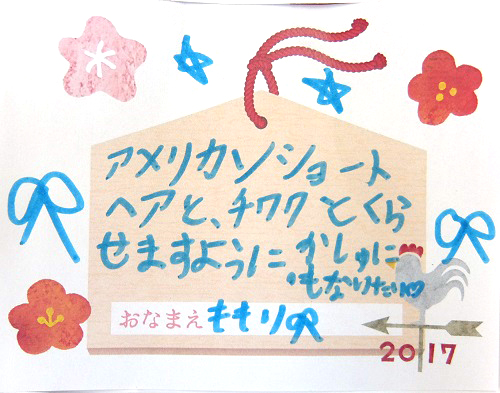 アメリカンショート
ヘアと、チワワとくら
せますように かしゅに
もなりたい♡
おなまえ ももり
2017